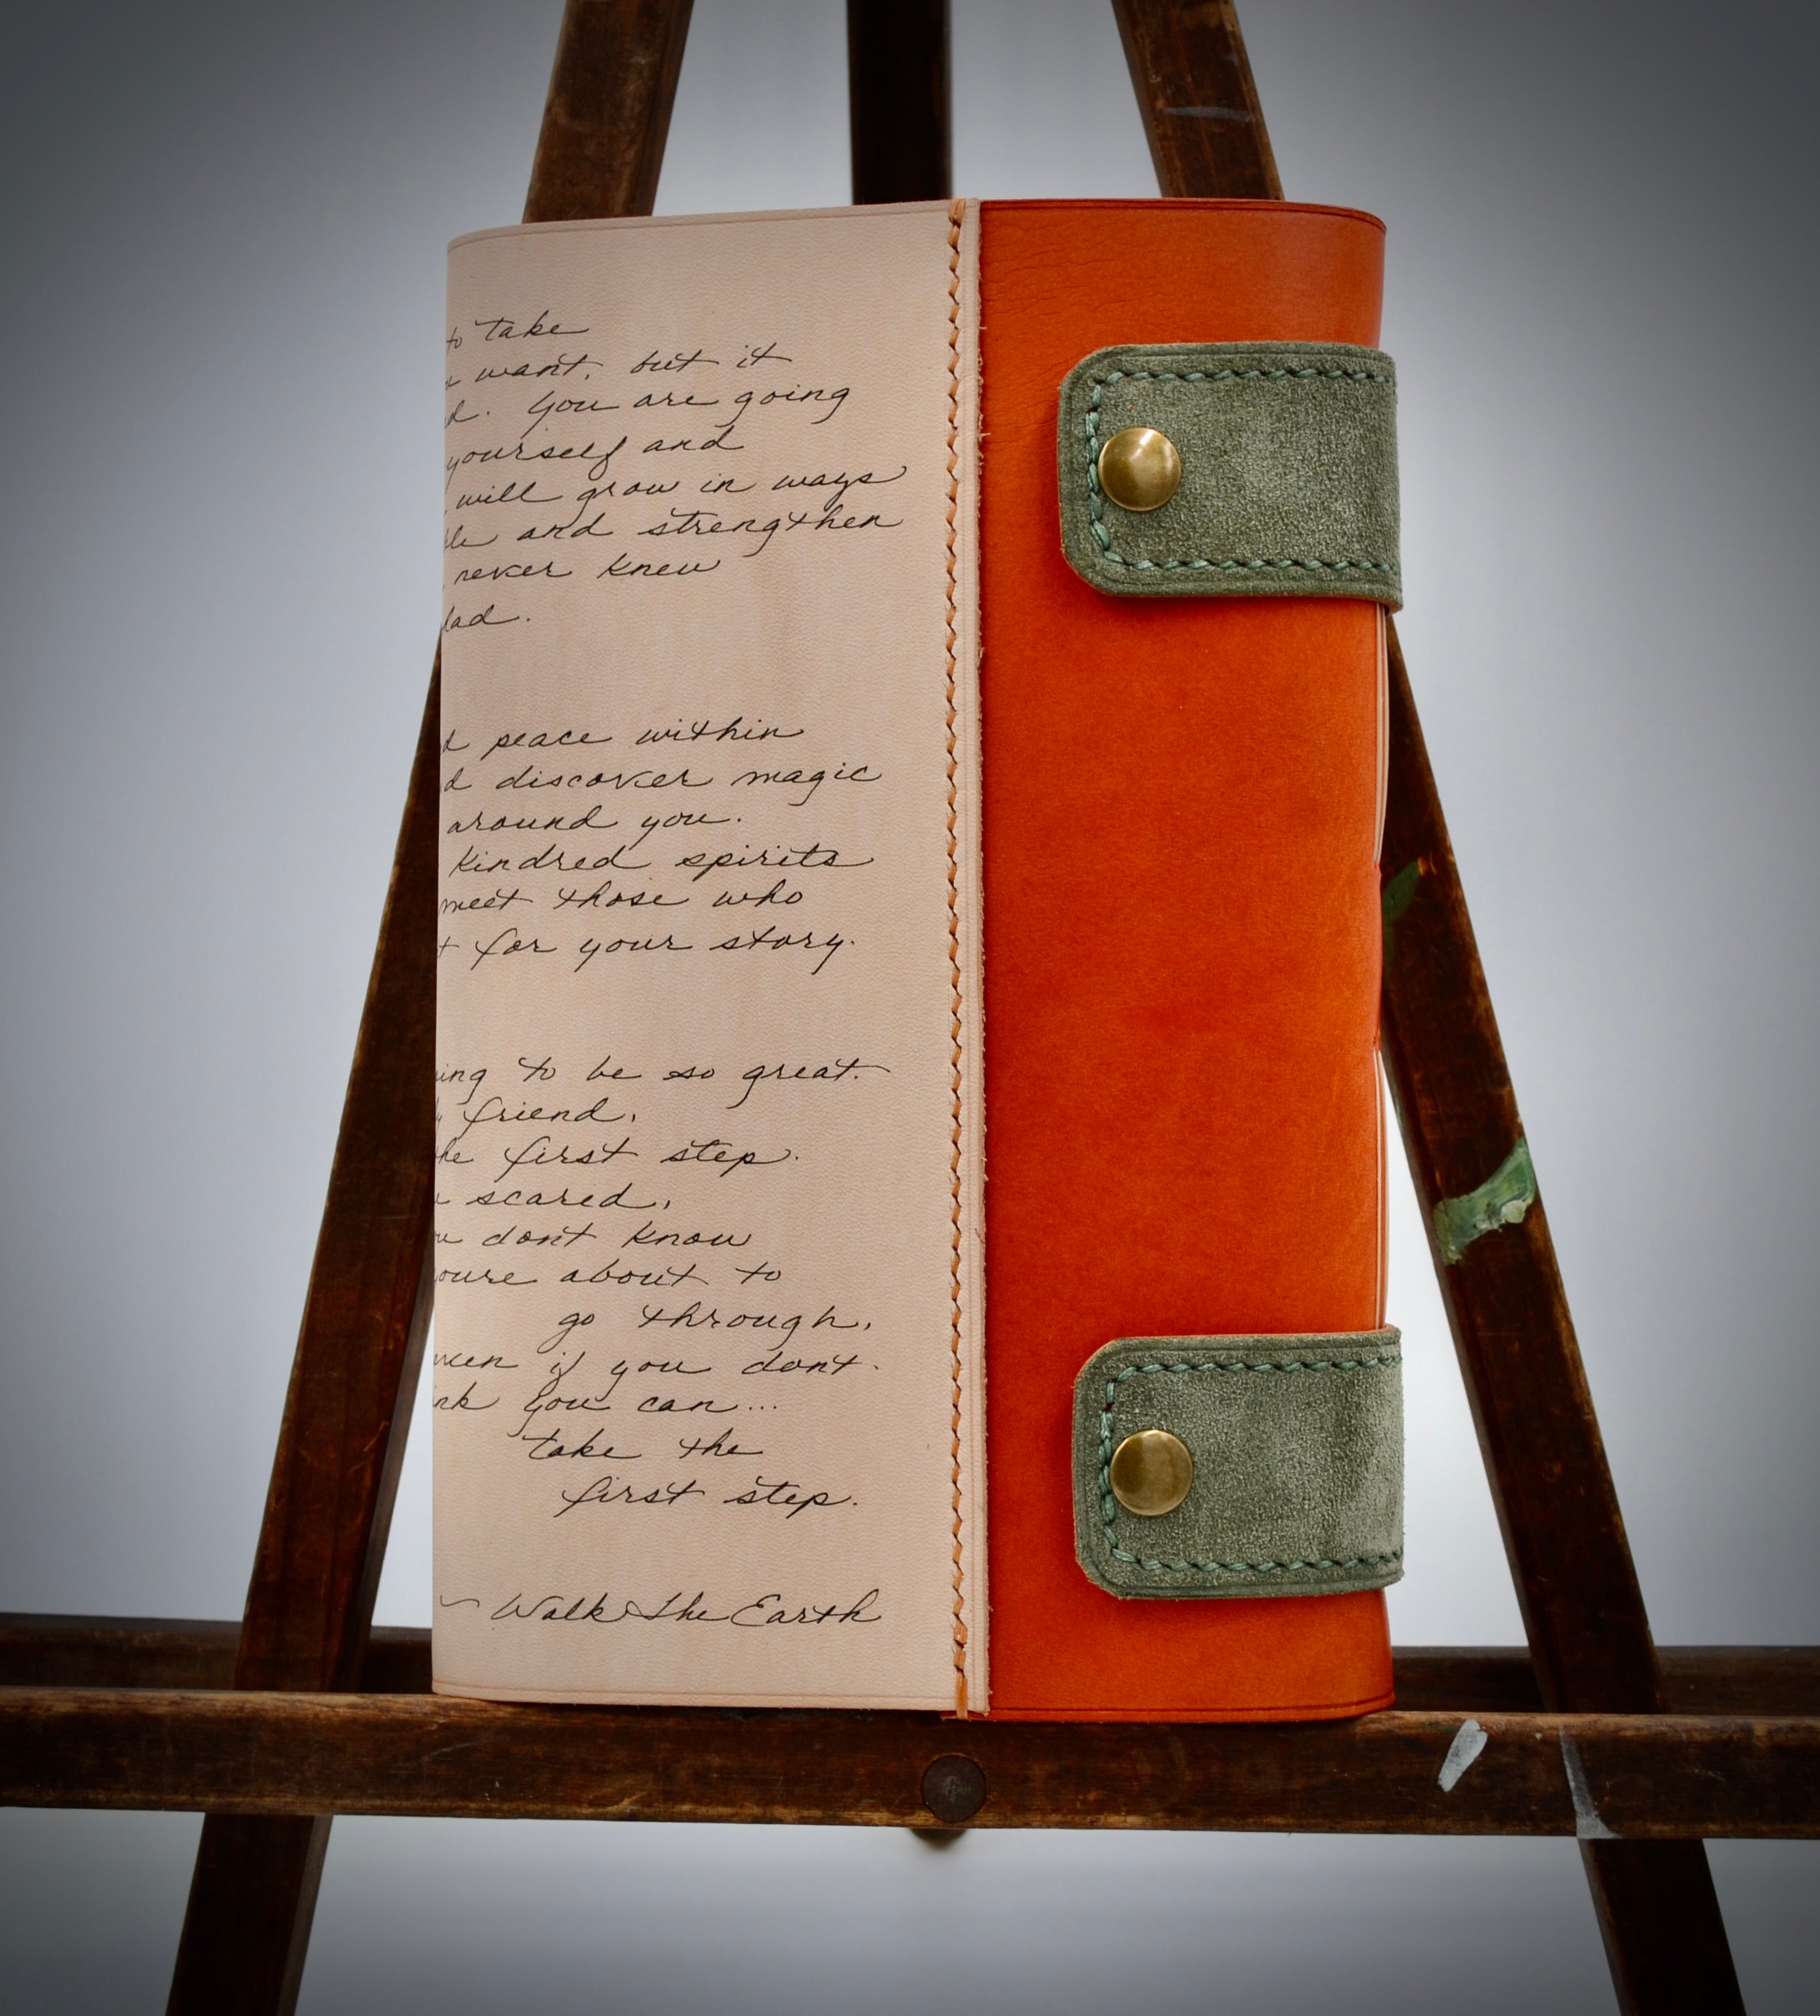 to take
want, but it
d. You are going
yourself and
will grow in ways
and strengthen
never knew
lad.
d peace within
d discover magic
around you.
kindred spirits
meet those who
t for your story.
ing to be so great.
friend,
he first step.
scared,
u don't know
oure about to
go through,
even if you don't
nk you can...
take the
first step.
~ Walk The Earth